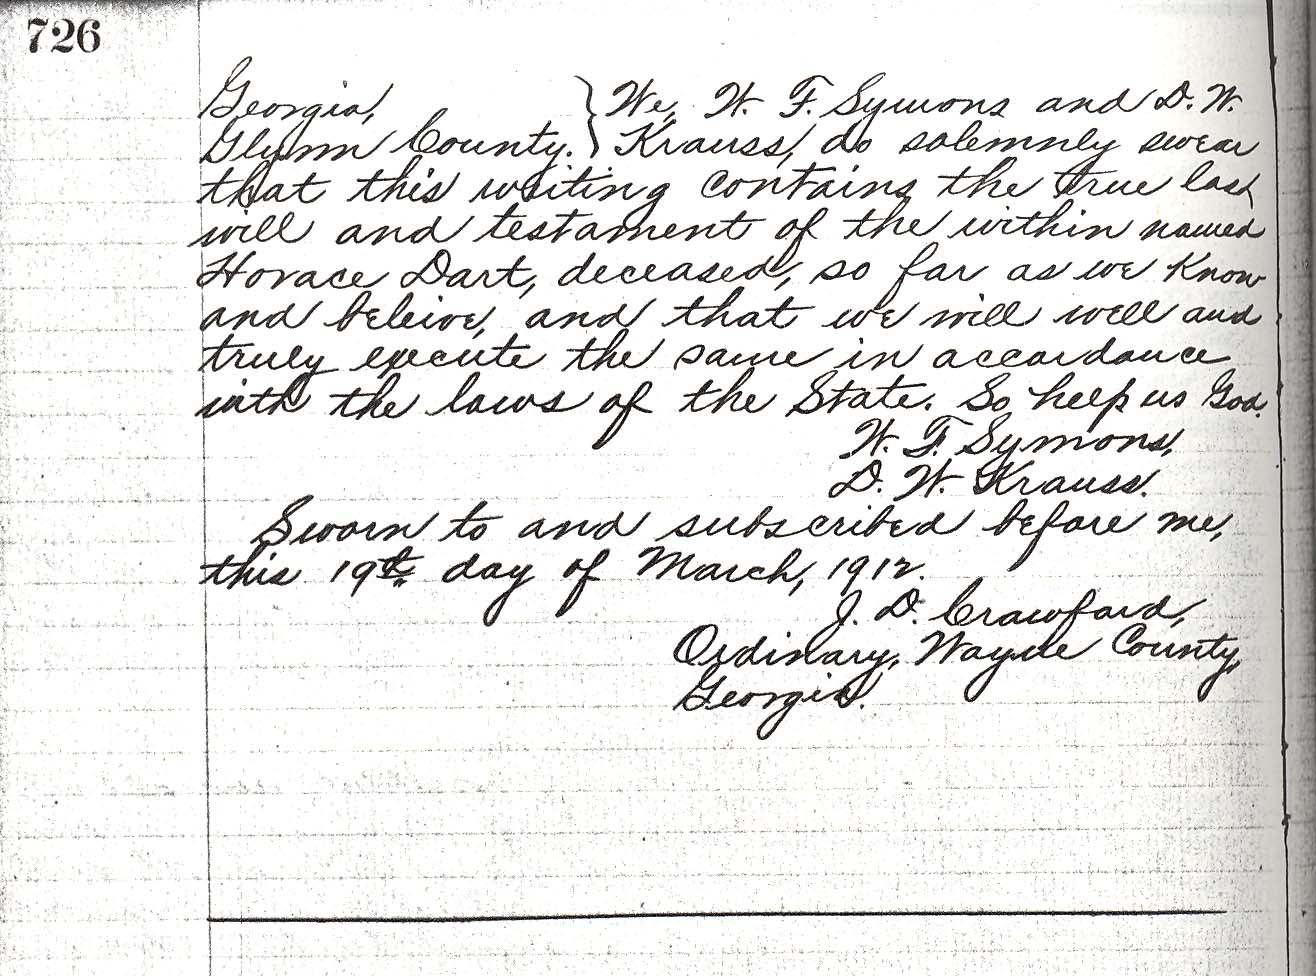 726
Georgia, } We, W. F. Symons and D. W.
Glynn County. } Krauss, do solemnly swear
that this writing contains the true last
will and testament of the within named
Horace Dart, deceased, so far as we know
and beleive, and that we will well and
truly execute the same in accordance
with the laws of the State. So help us God.
W. F. Symons,
D. W. Krauss.
Sworn to and subscribed before me,
this 19th. day of March, 1912.
J. D. Crawford,
Ordinary, Wayne County,
Georgia.